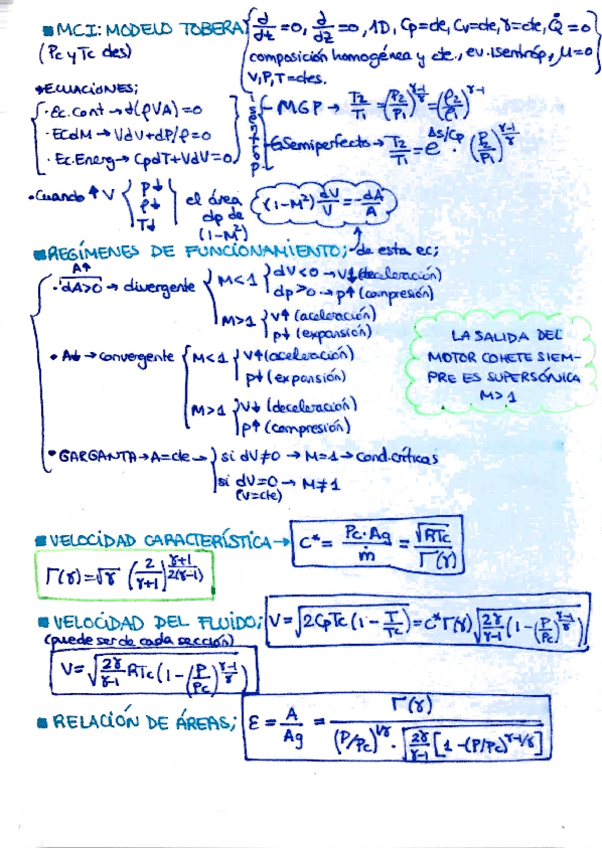 ■MCI: MODELO TOBERA { d/dt =0, d/dz =0, 1D, Cp=cte, Cv=cte, γ=cte, Q̇=0
(Pc y Tc ctes) composición homogénea y cte., ev. isentróp, μ=0
V, P, T = ctes.
→ECUACIONES;
· Ec. Cont → d(ρVA)=0
· ECdM → VdV+dP/ρ=0
· Ec. Energ → CpdT+VdV=0
isentrop
- MGP → T2/T1 = (P2/P1)^(γ-1/γ) = (ρ2/ρ1)^(γ-1)
- GSemiperfecto → T2/T1 = e^(ΔS/Cp) · (P2/P1)^(γ-1/γ)
• Cuando ↑V { p↓ ρ↓ T↓ } el área dp de (1-M²) (1-M²) dV/V = -dA/A
■REGÍMENES DE FUNCIONAMIENTO; de esta ec;
A↑
· dA>0 → divergente { M<1 { dV<0 → V↓ (deceleración)
dp>0 → p↑ (compresión)
M>1 { V↑ (aceleración)
p↓ (expansión)
• A↓ → convergente { M<1 { V↑ (aceleración)
p↓ (expansión)
M>1 { V↓ (deceleración)
p↑ (compresión)
LA SALIDA DEL
MOTOR COHETE SIEM-
PRE ES SUPERSÓNICA
M>1
• GARGANTA → A=cte → { si dV≠0 → M=1 → cond. críticas
si dV=0 → M≠1
(V=cte)
■ VELOCIDAD CARACTERÍSTICA → C* = Pc·Ag/ṁ = √RTc/Γ(γ)
Γ(γ)=√γ (2/γ+1)^(γ+1/2(γ-1))
■ VELOCIDAD DEL FLUIDO; V = √(2CpTc(1-T/Tc)) = C*Γ(γ)√(2γ/γ-1 (1-(P/Pc)^(γ-1/γ)))
(puede ser de cada sección)
V=√(2γ/γ-1 RTc(1-(P/Pc)^(γ-1/γ)))
■ RELACIÓN DE ÁREAS; ε = A/Ag = Γ(γ)/((P/Pc)^(1/γ) · √(2γ/γ-1 [1-(P/Pc)^(γ-1/γ)]))